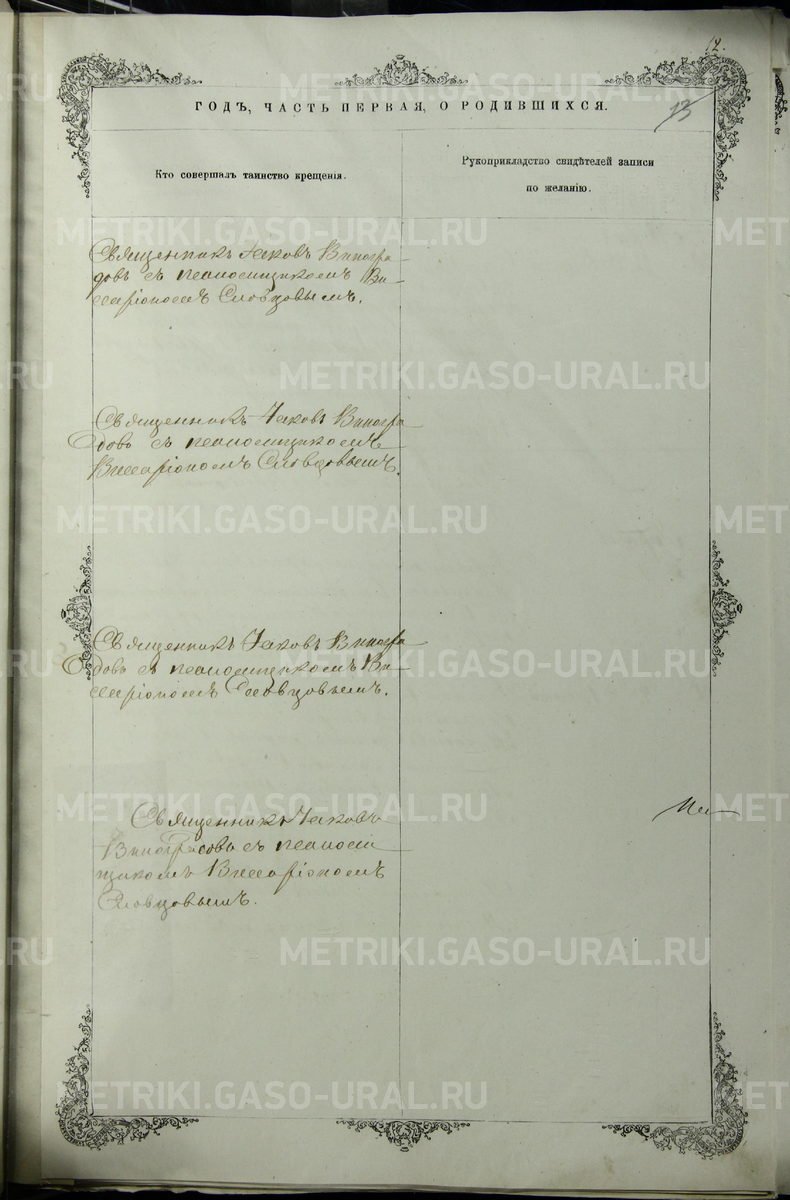 12.
13
ГОДЪ, ЧАСТЬ ПЕРВАЯ, О РОДИВШИХСЯ.
Кто совершалъ таинство крещенія.
Рукоприкладство свидѣтелей записи
по желанію.
Священникъ Іаковъ Виногра-
довъ съ псаломщикомъ Ви-
ссаріономъ Словцовымъ.
Священникъ Іаковъ Виногра
довъ съ псаломщикомъ
Виссаріономъ Словцовымъ.
Священникъ Іаковъ Виногра
довъ съ псаломщикомъ Ви-
ссаріономъ Словцовымъ.
Священникъ Іаковъ
Виноградовъ съ псаломщ
щикомъ Виссаріономъ
Словцовымъ.
METRIKI.GASO-URAL.RU